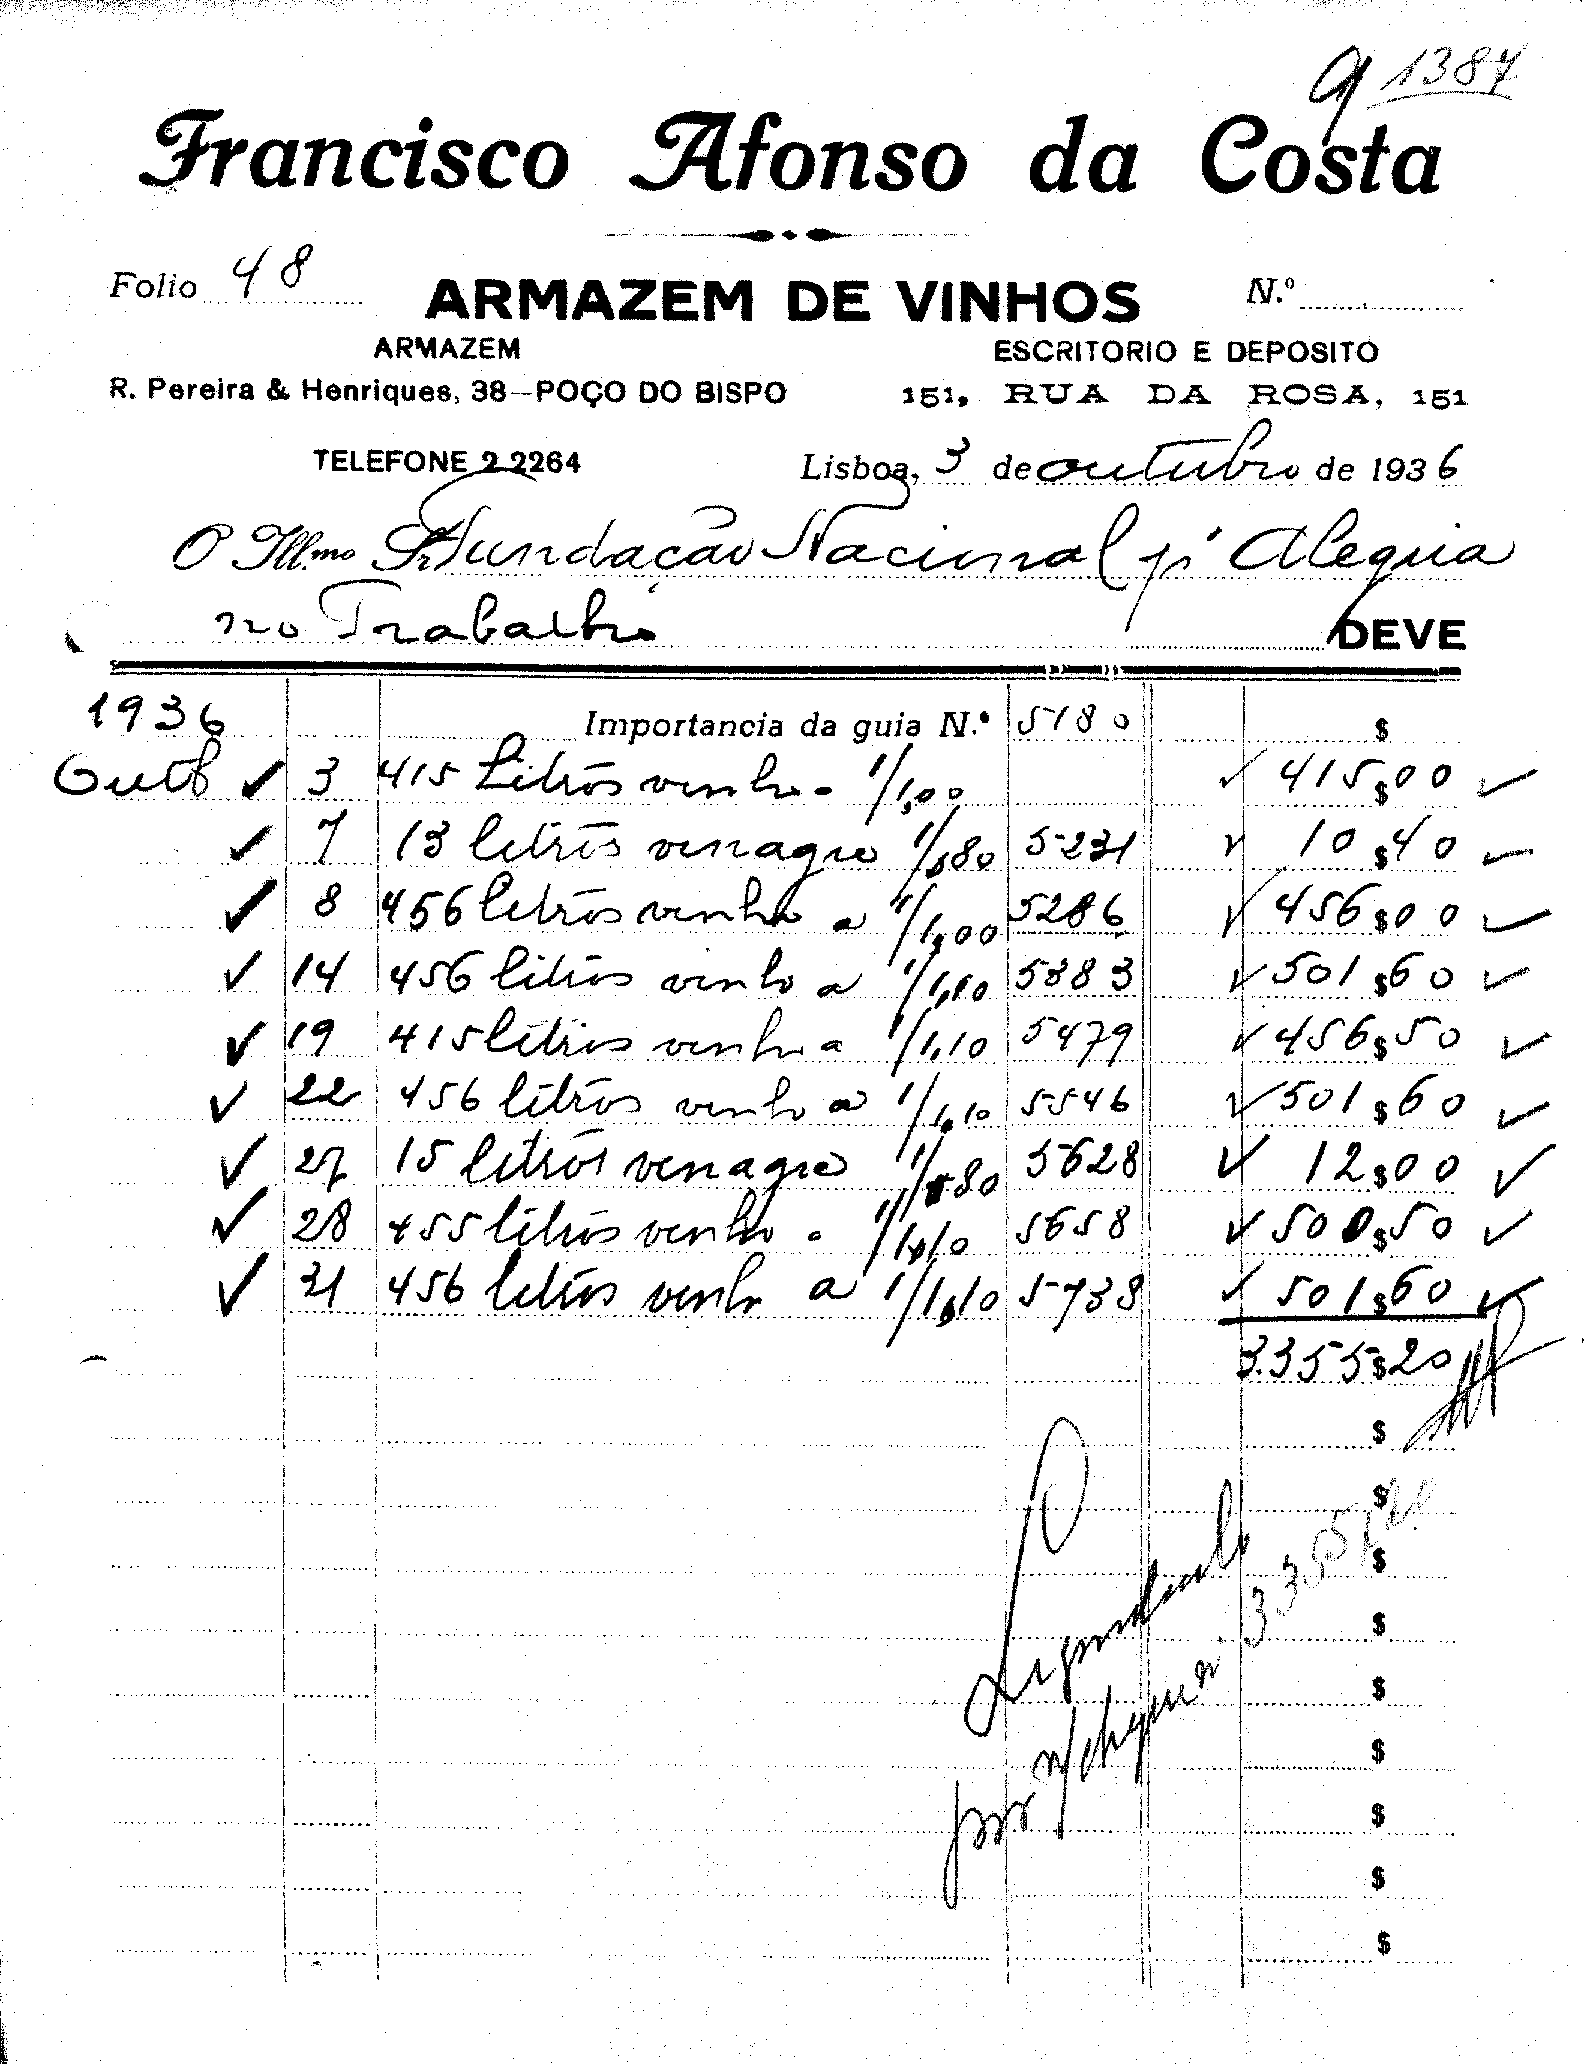 9 1384
Francisco Afonso da Costa
Folio 48 ARMAZEM DE VINHOS N.º
ARMAZEM ESCRITORIO E DEPOSITO
R. Pereira & Henriques, 38—POÇO DO BISPO 151, RUA DA ROSA, 151
TELEFONE 2 2264 Lisboa, 3 de outubro de 1936
O Ill.mo Sr. Fundação Nacional p' Alegria
no Trabalho DEVE
1936 Importancia da guia N.º 5180 $
Outb 3 415 Litros vinho a 1/1,00 415$00
7 13 litros vinagre 1/,80 5231 10$40
8 456 litros vinho a 1/1,00 5286 456$00
14 456 litros vinho a 1/1,10 5383 501$60
19 415 litros vinho a 1/1,10 5479 456$50
22 456 litros vinho a 1/1,10 5546 501$60
27 15 litros vinagre 1/,80 5628 12$00
28 455 litros vinho a 1/1,10 5658 500$50
31 456 litros vinho a 1/1,10 5738 501$60
3.355$20
$
$
$
$
$
$
$
$
$
por n/ 3355,20